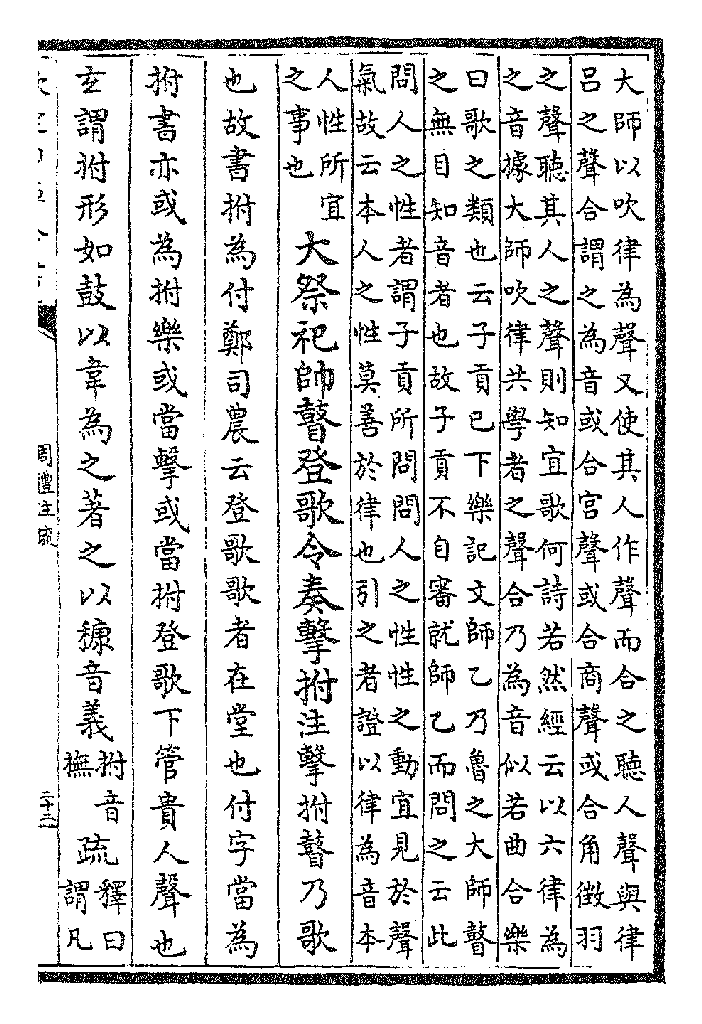 大師以吹律為聲又使其人作聲而合之聽人聲與律
呂之聲合謂之為音或合宮聲或合商聲或合角徵羽
之聲聽其人之聲則知宜歌何詩若然經云以六律為
之音據大師吹律共學者之聲合乃為音似若曲合樂
曰歌之類也云子貢已下樂記文師乙乃魯之大師瞽
之無目知音者也故子貢不自審就師乙而問之云此
問人之性者謂子貢所問問人之性性之動宜見於聲
氣故云本人之性莫善於律也引之者證以律為音本
人性所宜
之事也
大祭祀帥瞽登歌令奏擊拊注擊拊瞽乃歌
也故書拊為付鄭司農云登歌歌者在堂也付字當為
拊書亦或為拊樂或當擊或當拊登歌下管貴人聲也
玄謂拊形如鼓以韋為之著之以穅音義
拊音
撫
疏
釋曰
謂凡
周禮注疏
二十三